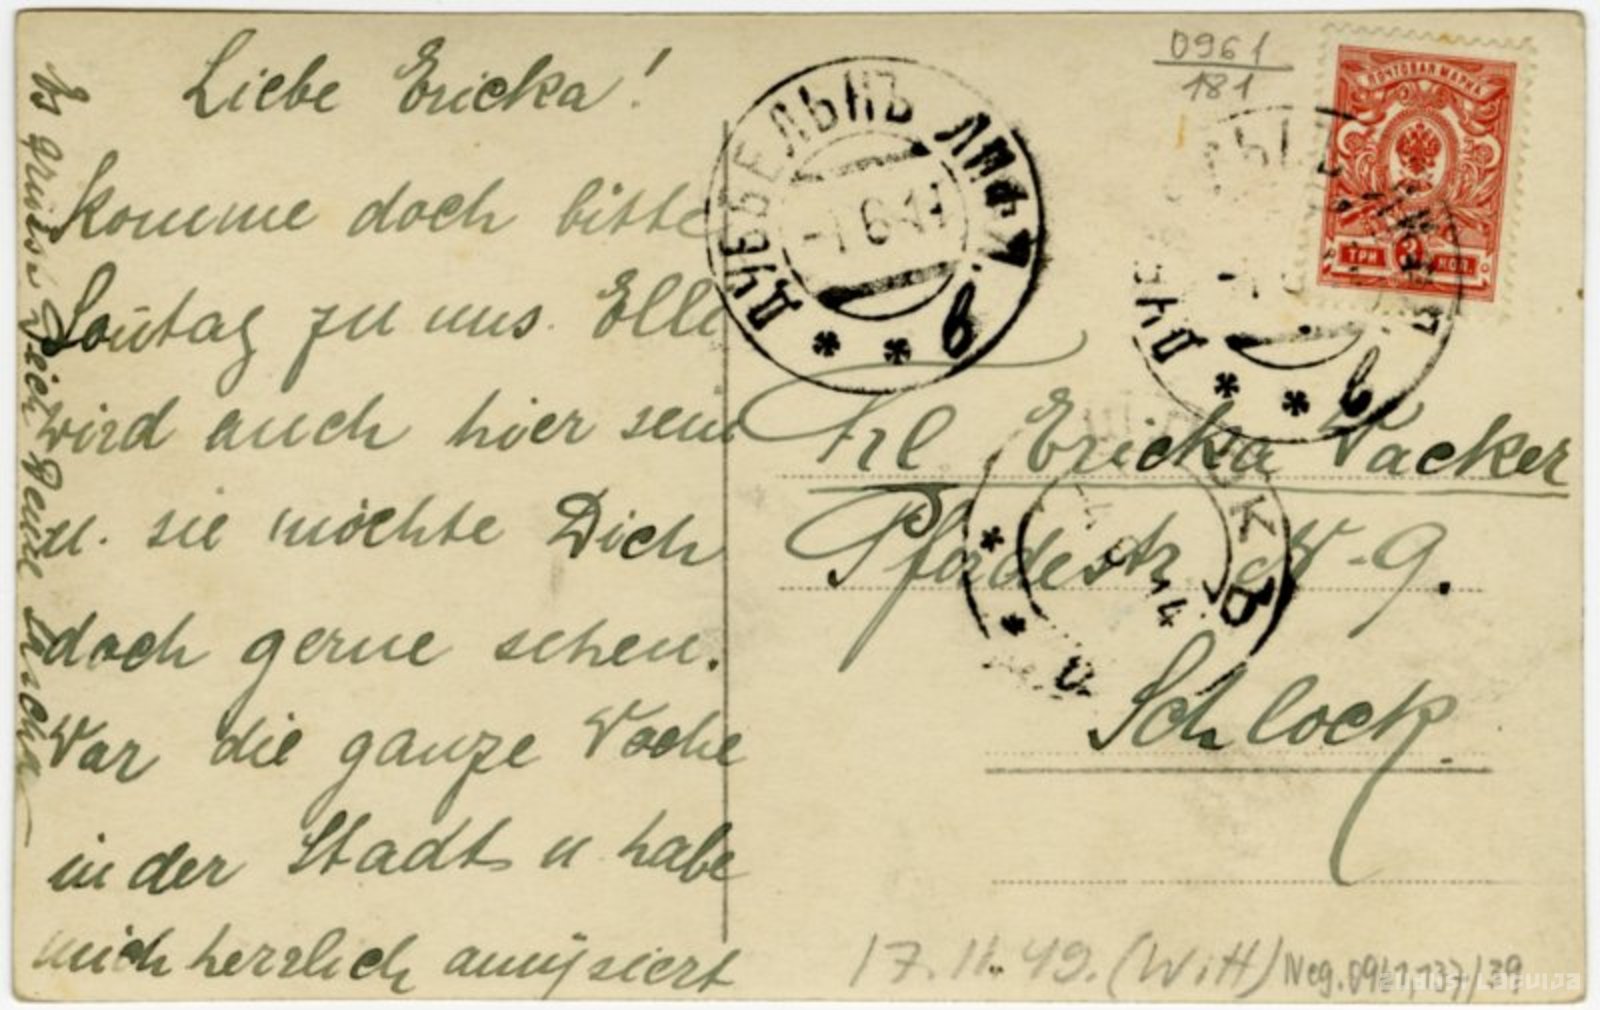 Liebe Ericka!
Komme doch bitte
Sontag zu uns. Elli
wird auch hier sein
u. sie möchte Dich
doch gerne sehen.
War die ganze Woche
in der Stadt u habe
mich herzlich amÿsiert
Es grüsst Dich Deine
ДУББЕЛЬНЪ ЛИФЛ.
-1 6-14
б
0961
181
ПОЧТОВАЯ МАРКА
3
ТРИ КОП.
Frl Ericka Packer
Pferdestr. N-9.
Schlock.
14
17.11.49. (Witt) Neg. 0961,137/39
zudusi Latvija